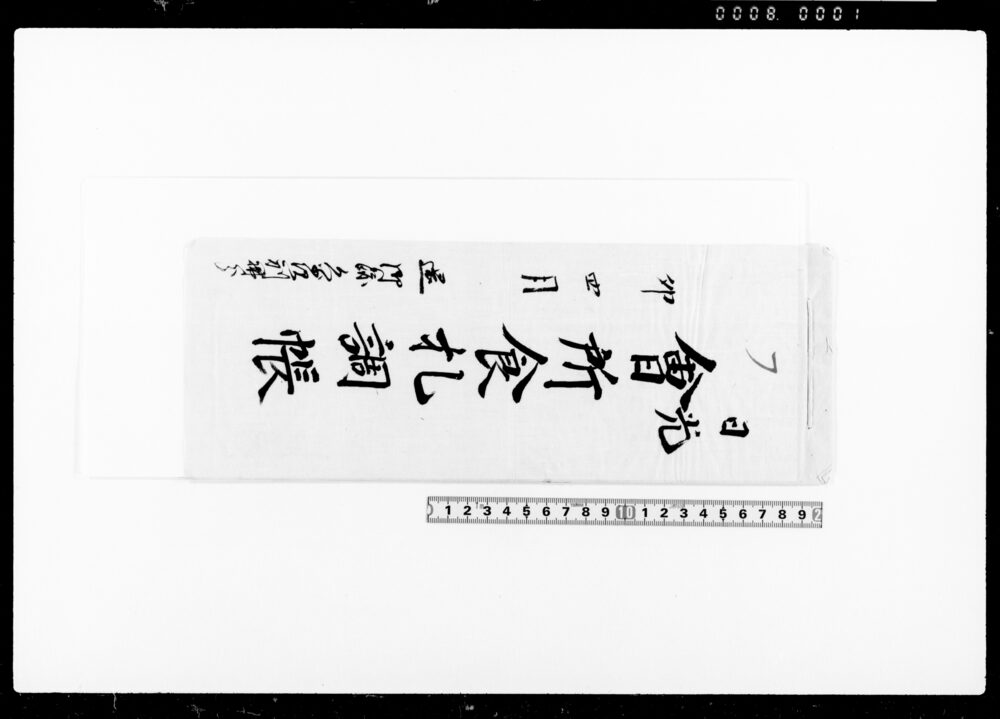 0008. 0001
日光
會所食札調帳
卯四月
1 2 3 4 5 6 7 8 9 10 1 2 3 4 5 6 7 8 9 2